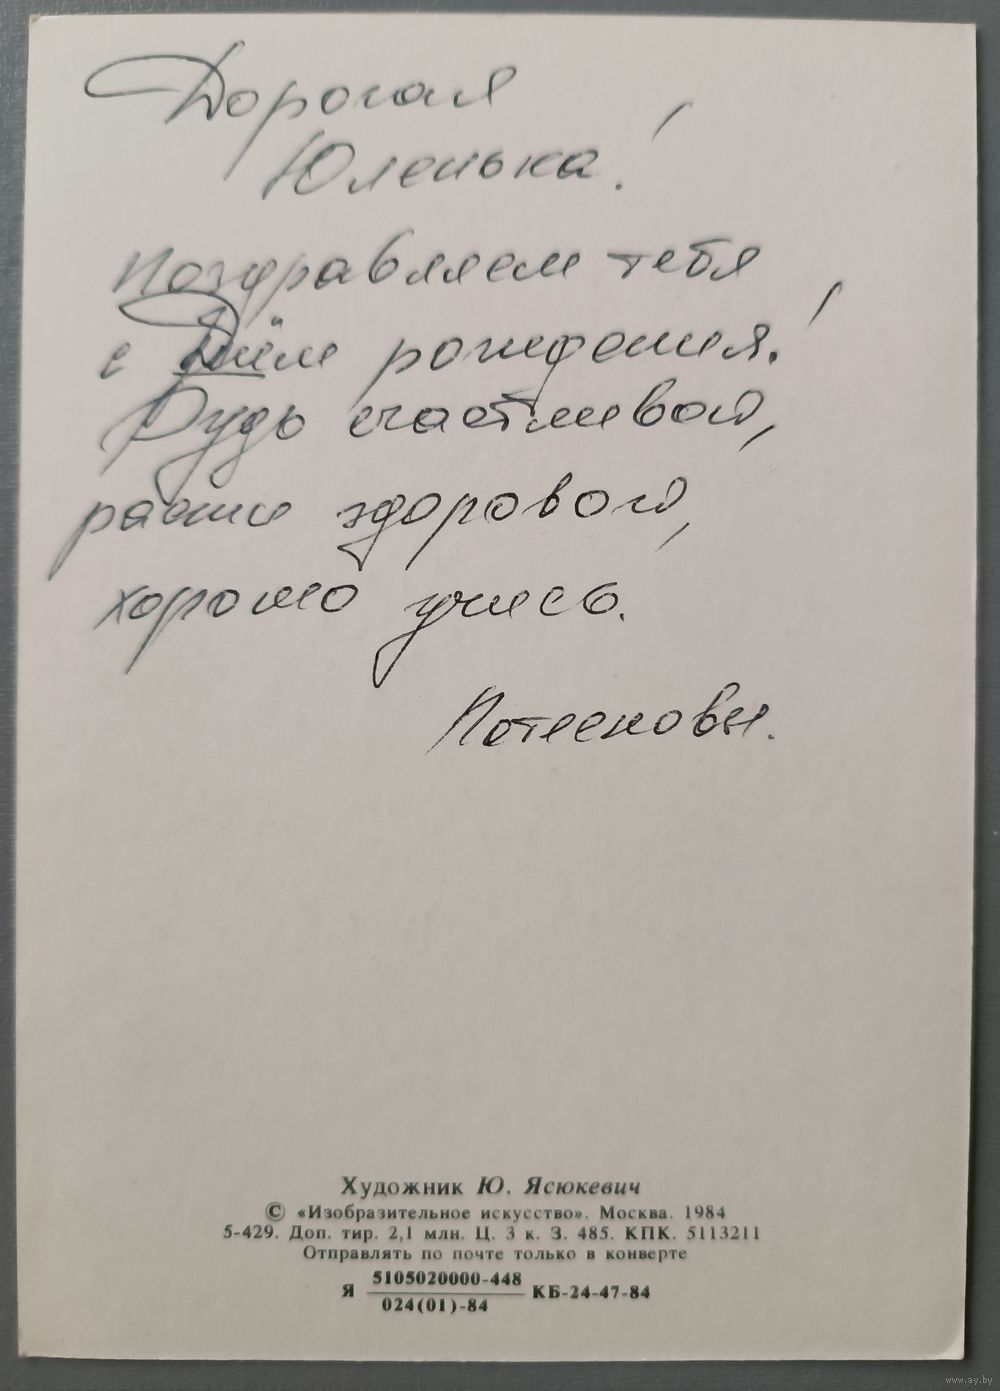 Дорогая
Юленька!
поздравляем тебя
с Днём рождения!
Будь счастливой,
расти здоровой,
хорошо учись.
Художник Ю. Ясюкевич
© «Изобразительное искусство». Москва. 1984
5-429. Доп. тир. 2,1 млн. Ц. 3 к. З. 485. КПК. 5113211
Отправлять по почте только в конверте
Я 5105020000-448 КБ-24-47-84
024(01)-84
www.ay.by